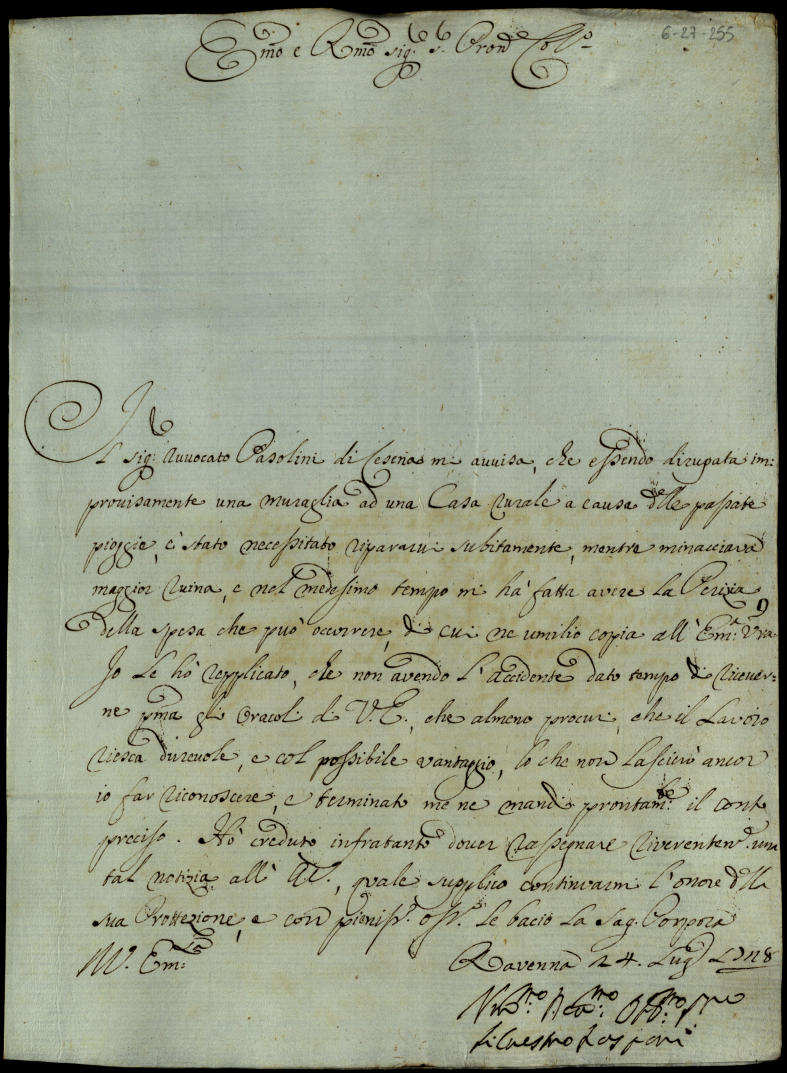 6-27-255
Emo e Rmo Sig. s. Pron Colo
Il Sig: Avvocato Pasolini di Cesena mi avvisa, che essendo dirupata im:
provisamente una muraglia ad una Casa rurale a causa delle passate
pioggie, è stato necessitato ripararvi subitamente, mentre minacciava
maggior ruina, e nel medesimo tempo mi hà fatta avere la Perizia
della spesa che può occorrere, di cui ne umilio copia all'Em:a Vra.
Io le hò replicato, che non avendo l'accidente dato tempo di ricever=
ne pma gli Oracoli di V.E., che almeno procuri, che il Lavoro
riesca durevole, e col possibile vantaggio, lo che non lascierò ancor
io far riconoscere, e terminato me ne mandi prontamte: il conto
preciso. Hò creduto infratanto dover rassegnare riverentemte. una
tal notizia all' , quale supplico continuarmi l'onore della
sua Protezione, e con pienissmo. osso. le bacio la Sag. Porpora
Di V. Emza: Ravenna 24. Lugo 1728
Vmo: Devmo: Obbmo: Sre
Silvestro Rasponi